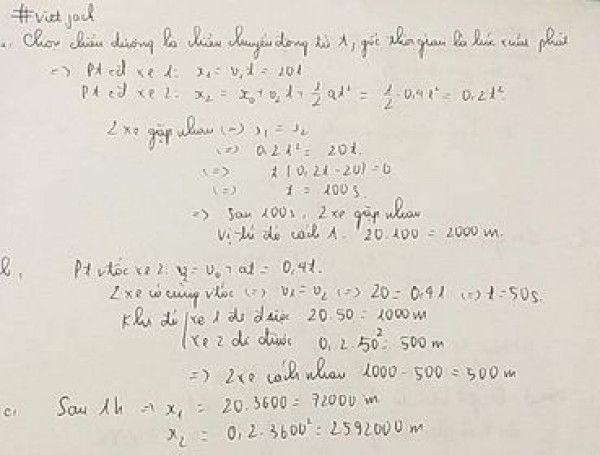 #viet jack
a, Chọn chiều dương là chiều chuyển động từ A, gốc thời gian là lúc xuất phát
=> Pt cđ xe 1: x₁ = v₁t = 20t
Pt cđ xe 2: x₂ = x₀ + v₀t + 1/2 at² = 1/2 . 0,4t² = 0,2t².
2 xe gặp nhau (=) x₁ = x₂
(=) 0,2t² = 20t.
(=) t(0,2t - 20) = 0
(=) t = 100s.
=> Sau 100s, 2 xe gặp nhau
Vị trí đó cách A. 20.100 = 2000 m.
b, Pt vtốc xe 2: v₂ = v₀ + at = 0,4t.
2 xe có cùng vtốc (=) v₁ = v₂ (=) 20 = 0,4t (=) t = 50s.
Khi đó xe 1 đi được 20.50 = 1000 m
xe 2 đi được 0,2.50² = 500 m
=> 2 xe cách nhau 1000 - 500 = 500 m
c, Sau 1h => x₁ = 20.3600 = 72000 m
x₂ = 0,2.3600² = 2592000 m